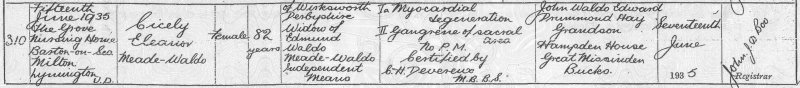 310
Fifteenth
June 1935
The Grove
Nursing Home
Barton-on-Sea
Milton
Lymington
U.D.
Cicely
Eleanor
Meade-Waldo
Female
82
years
of Wirksworth
Derbyshire
Widow of
Edmund
Waldo
Meade-Waldo
Independent
Means
Ia Myocardial
degeneration
II Gangrene of sacral
area
No P.M.
Certified by
C.H. Devereux
M.B.B.S.
John Waldo Edward
Drummond Hay
Grandson
Hampden House
Great Missenden
Bucks.
Seventeenth
June
1935
John J. D.
Registrar